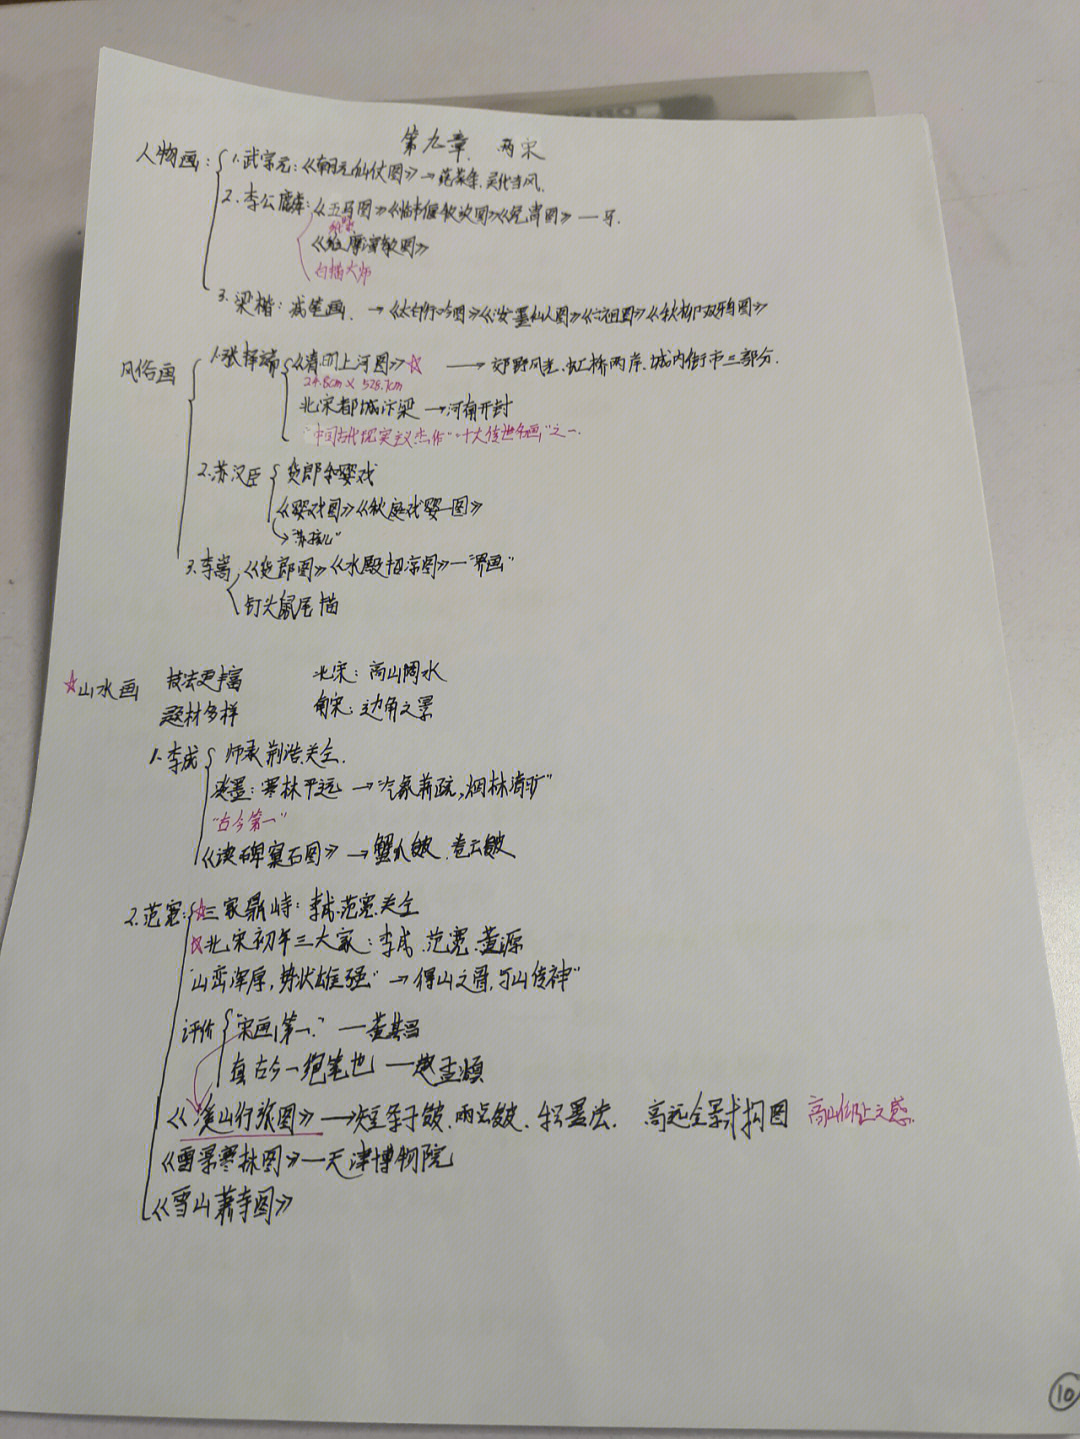 第九章 两宋
人物画：1.武宗元：《朝元仙仗图》→莼菜条.吴代当风.
2.李公麟：《五马图》《临韦偃牧放图》《免胄图》—马.
《维摩演教图》
白描大师
3.梁楷：减笔画. →《太白行吟图》《泼墨仙人图》《六祖图》《秋柳双鸦图》
风俗画 1.张择端《清明上河图》☆ → 郊野风光.虹桥两岸.城内街市三部分.
24.8cm×528.7cm
北宋都城汴梁→河南开封
"中国古代现实主义杰作""十大传世名画"之一.
2.苏汉臣 货郎和婴戏
《婴戏图》《秋庭戏婴图》
→"苏孩儿"
3.李嵩《货郎图》《水殿招凉图》—"界画"
钉头鼠尾描
☆山水画 技法更丰富 北宋：高山阔水
题材多样 南宋：边角之景
1.李成 师承荆浩.关仝.
淡墨：寒林平远→"气象萧疏，烟林清旷"
"古今第一"
《读碑窠石图》→蟹爪皴.卷云皴
2.范宽：☆三家鼎峙：李成.范宽.关仝
☆北宋初年三大家：李成.范宽.董源
"山峦浑厚，势状雄强"→得山之骨，与山传神"
评价 "宋画第一."—董其昌
真古今一绝笔也—赵孟頫
《溪山行旅图》→短条子皴.雨点皴.积墨法. 高远全景式构图 高山仰止之感.
《雪景寒林图》—天津博物院
《雪山萧寺图》
10